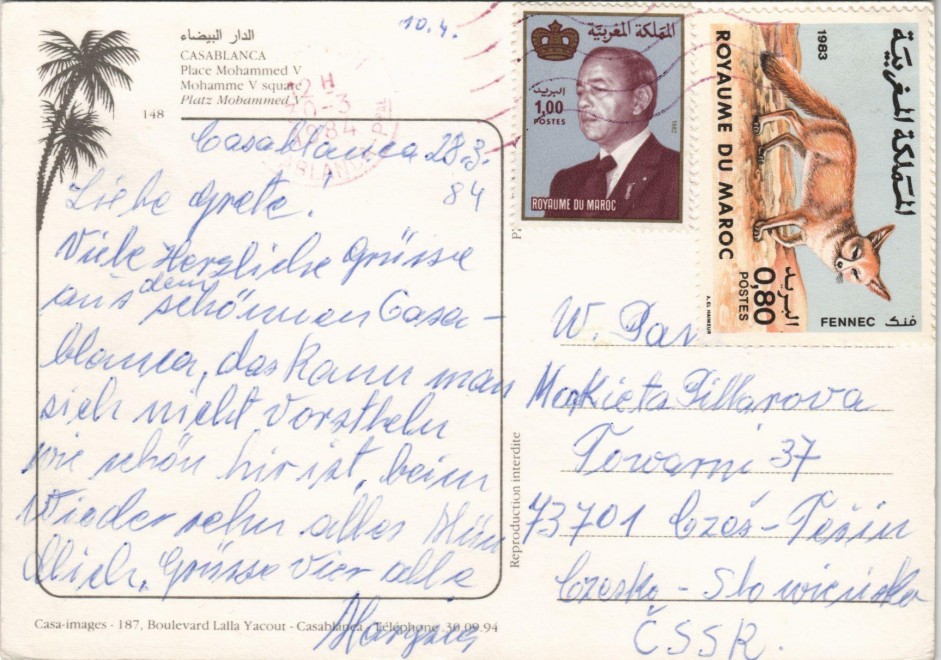 10.4.
الدار البيضاء
CASABLANCA
Place Mohammed V
Mohamme V square
Platz Mohammed V
148
Casablanca 28.3.
84
Liebe Grete,
Viele Herzliche Grüsse
aus dem schönnen Casa-
blanca, das kann man
sich nicht vorstheln
wie schön hir ist, beim
Wiedersehn alles Mün
dlich, Grüsse vier alle
Casa-images - 187, Boulevard Lalla Yacout - Casablanca - Téléphone 30.09.94
Reproduction interdite
المملكة المغربية
البريد
1,00
POSTES
1982
ROYAUME DU MAROC
المملكة المغربية
1983
ROYAUME DU MAROC
البريد
0,80
POSTES
FENNEC فنك
A. EL HAIMEUR
W. Pav
Markieta Pillarova
Towarni 37
73701 Czes-Tešin
Czesko-Slowiensko
ČSSR.